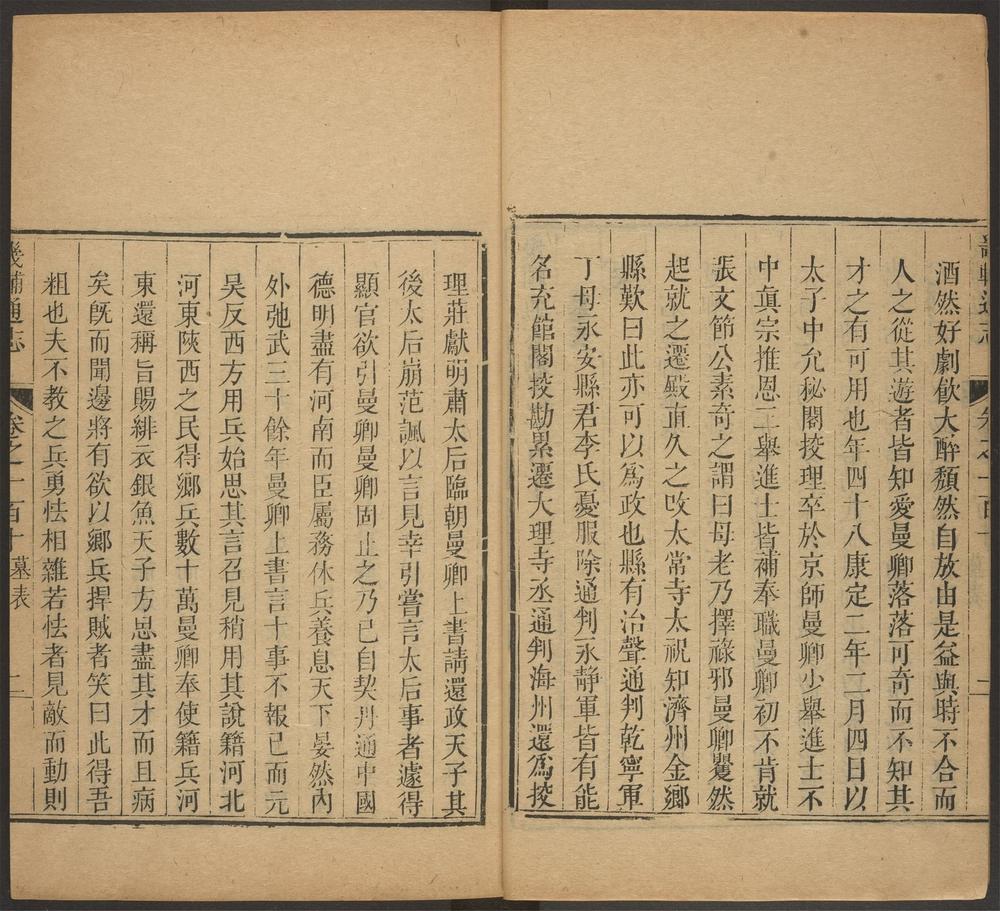 酒然好劇飲大醉頹然自放由是益與時不合而
人之從其遊者皆知愛曼卿落落可奇而不知其
才之有可用也年四十八康定二年二月四日以
太子中允秘閣挍理卒於京師曼卿少舉進士不
中真宗推恩三舉進士皆補奉職曼卿初不肯就
張文節公素奇之謂曰母老乃擇祿邪曼卿矍然
起就之遷殿直久之攺太常寺太祝知濟州金鄉
縣歎曰此亦可以爲政也縣有治聲通判乾寧軍
丁母永安縣君李氏憂服除通判永靜軍皆有能
名充館閣挍勘累遷大理寺丞通判海州還爲挍
理莊獻明肅太后臨朝曼卿上書請還政天子其
後太后崩范諷以言見幸引嘗言太后事者遽得
顯官欲引曼卿曼卿固止之乃已自契丹通中國
德明盡有河南而臣屬務休兵養息天下晏然內
外弛武三十餘年曼卿上書言十事不報已而元
昊反西方用兵始思其言召見稍用其說籍河北
河東陝西之民得鄉兵數十萬曼卿奉使籍兵河
東還稱旨賜緋衣銀魚天子方思盡其才而且病
矣旣而聞邊將有欲以鄉兵捍賊者笑曰此得吾
粗也夫不教之兵勇怯相雜若怯者見敵而動則
畿輔通志 卷之一百十 墓表 二